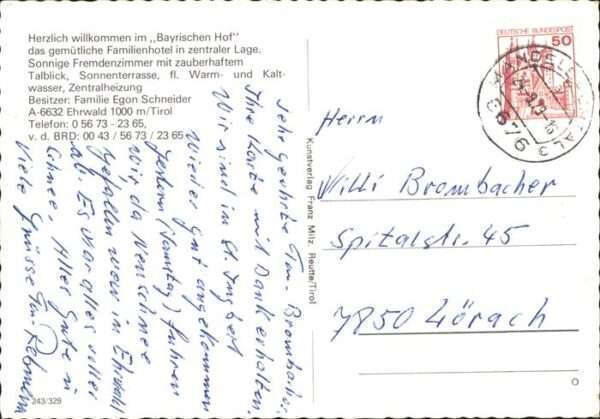 Herzlich willkommen im „Bayrischen Hof"
das gemütliche Familienhotel in zentraler Lage.
Sonnige Fremdenzimmer mit zauberhaftem
Talblick, Sonnenterrasse, fl. Warm- und Kalt-
wasser, Zentralheizung
Besitzer: Familie Egon Schneider
A-6632 Ehrwald 1000 m/Tirol
Telefon: 0 56 73 - 23 65,
v. d. BRD: 00 43 / 56 73 / 23 65
Sehr geehrte Fam. Brombacher
Ihre Karte mit Dank erhalten.
Wir sind in St. Ingbert
wieder gut angekommen
gestern (Samstag) fuhren
wir da Neuschnee
gefallen war in Ehrwald
ab. Es war alles voller
Schnee. Alles Gute u
Viele Grüsse Fam.
243/329
Kunstverlag Franz Milz, Reutte/Tirol
DEUTSCHE BUNDESPOST
50
6676
Herrn
Willi Brombacher
Spitalstr. 45
7850 Lörach